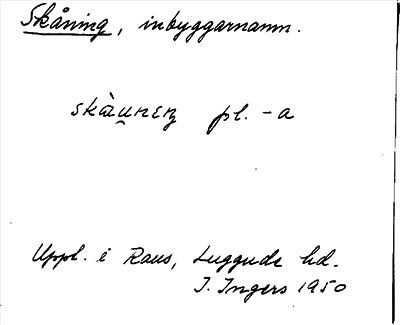 Skåning, inbyggarnamn.
skàu̯nɛŋ pl. -a
Uppl. i Raus, Luggude hd.
I. Ingers 1950